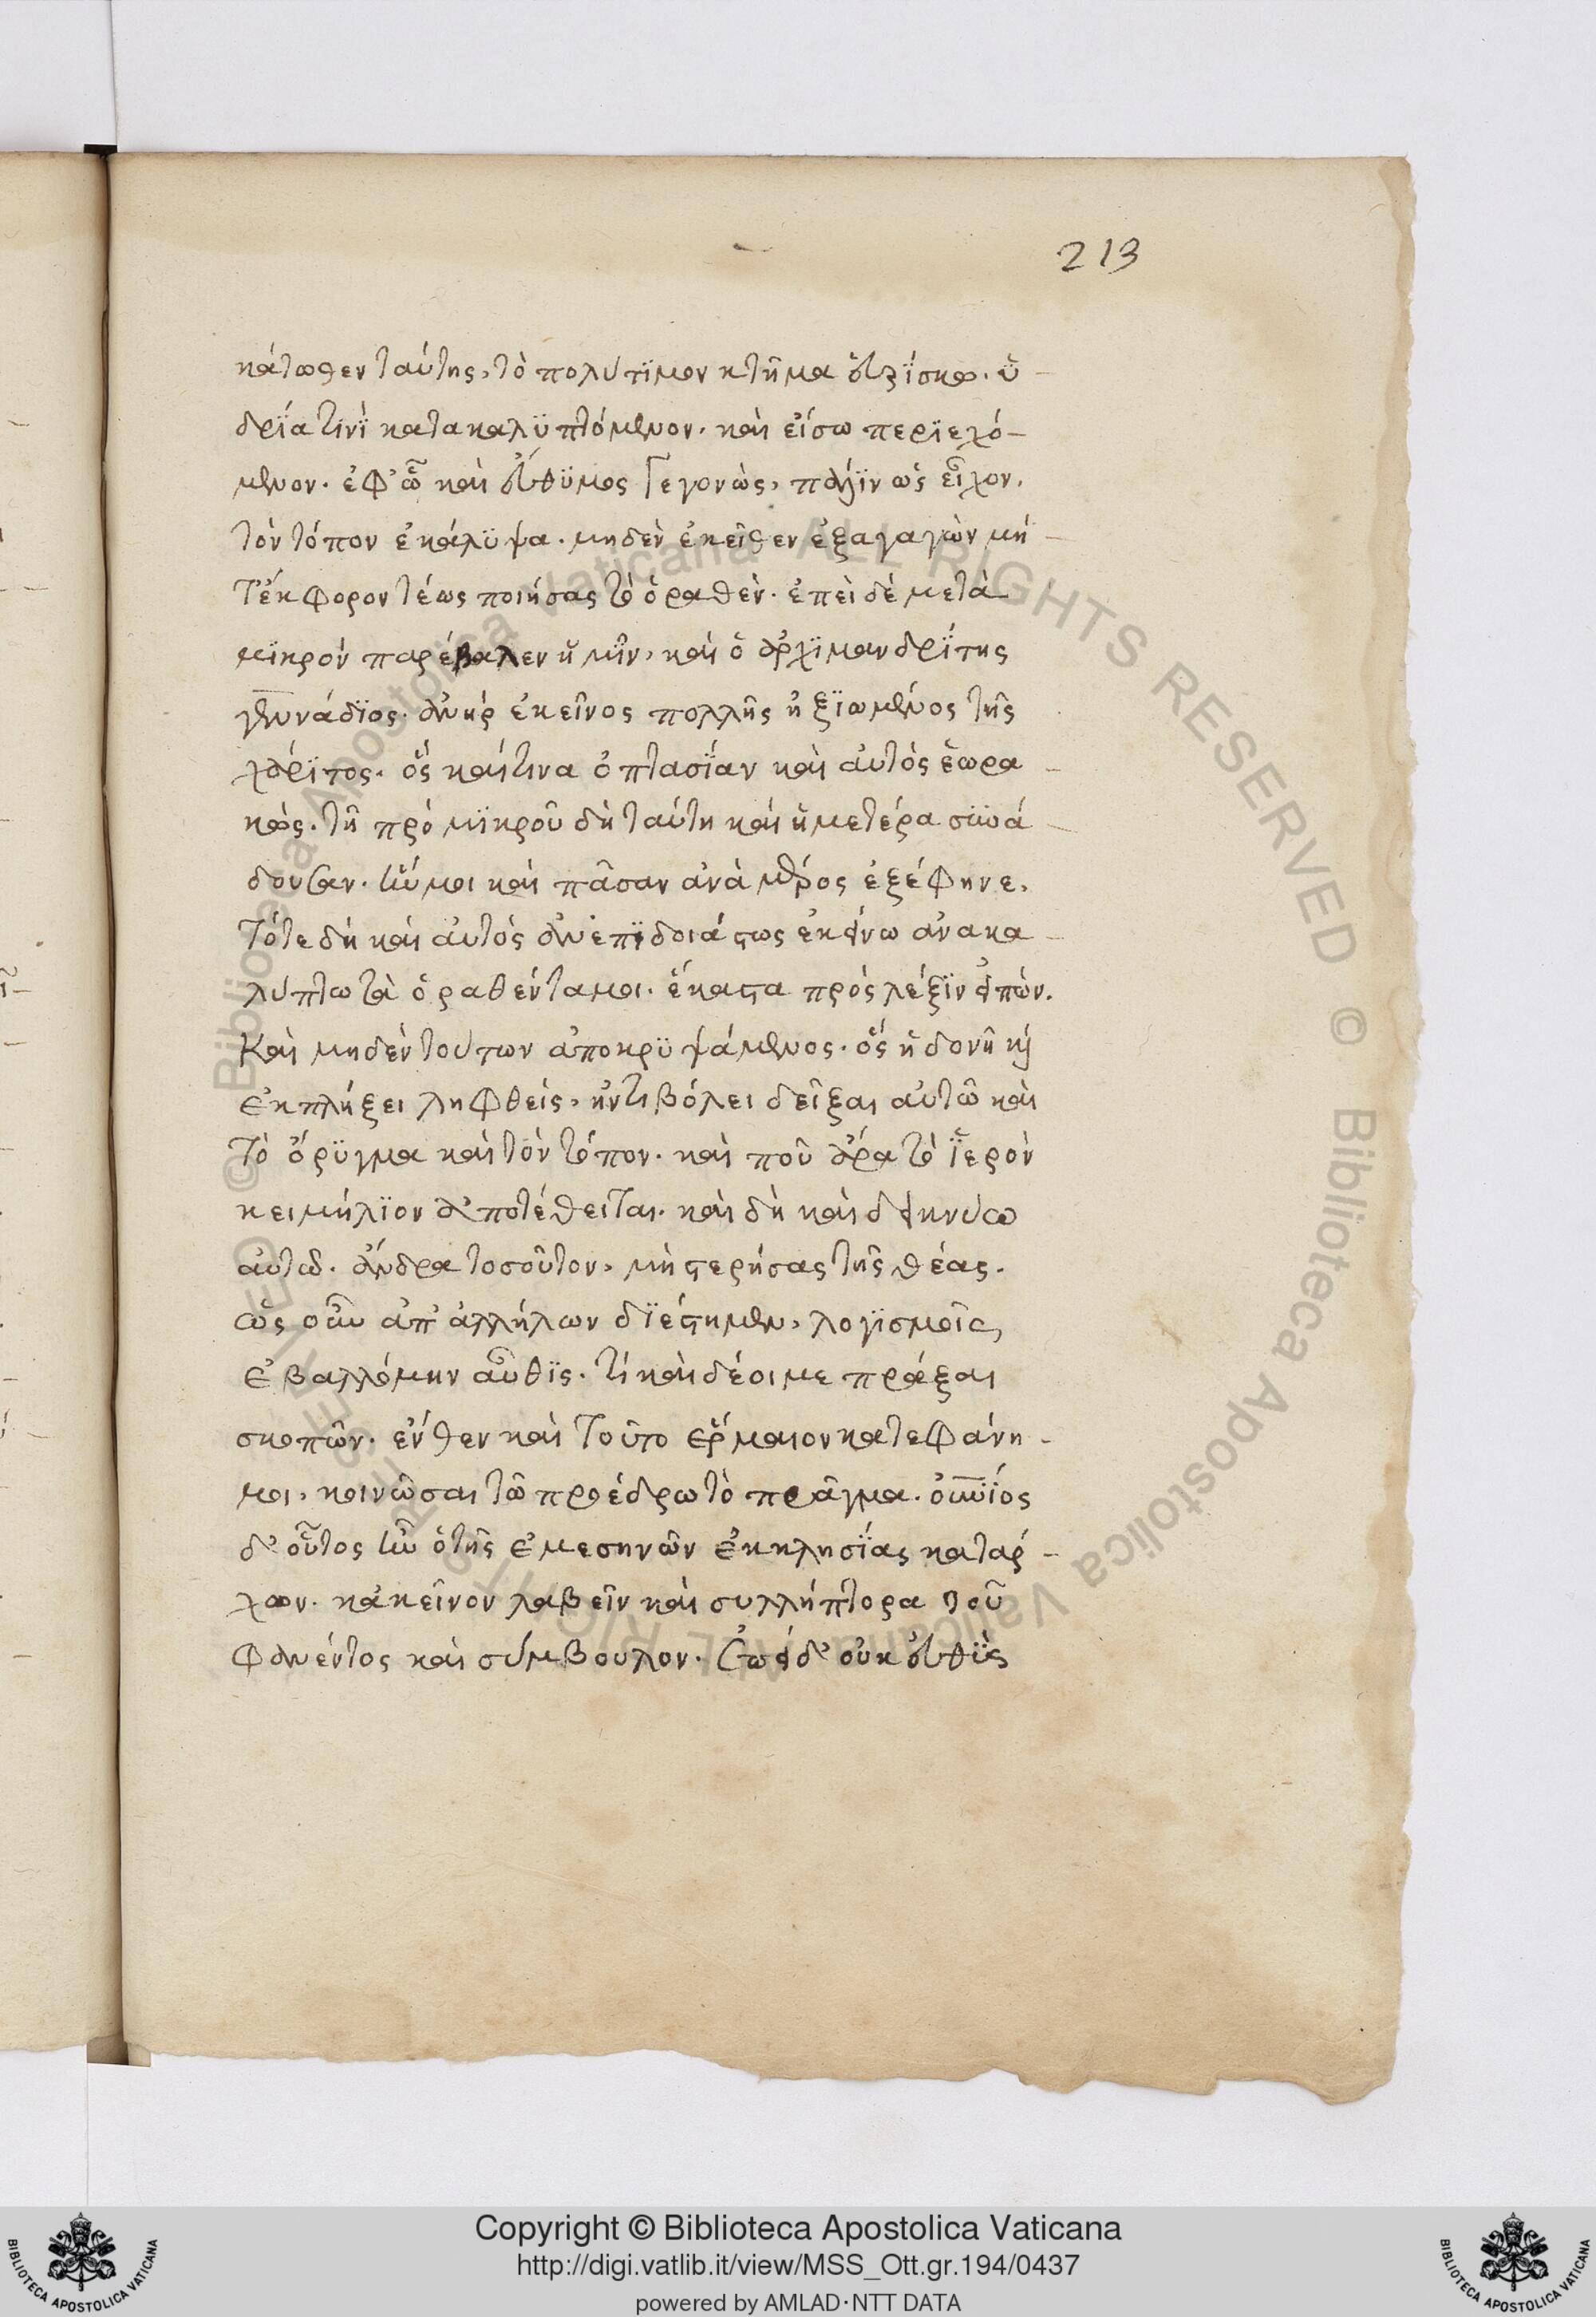 213
κάτωθεν ταύτης, τὸ πολυτίμον κτῆμα εὑρΐσκω. ὑ-
δρΐα τινῒ κατακαλϋπτόμενον. καὶ εἴσω περϊεχό-
μενον. ἐφ' ὧ καὶ εὔθϋμος γεγονὼς, πάλϊν ὡς εἶχον.
τὸν τόπον ἐκάλϋψα. μηδὲν ἐκεῖθεν ἐξαγαγὼν μή-
τ' ἔκφορον τέως ποιήσας τὸ ὁραθὲν. ἐπεὶ δὲ μετὰ
μϊκρὸν παρέβαλεν ἡμῖν, καὶ ὁ ἀρχϊμανδρΐτης
γεννάδϊος. ἀνὴρ ἐκεῖνος πολλῆς ἠξϊωμένος τῆς
χάρϊτος. ὃς καί τινα ὀπτασΐαν καὶ αὐτὸς ἑωρα-
κὼς. τῇ πρὸ μϊκροῦ δὴ ταύτη καὶ ἡμετέρα σϋνά-
δουσαν. ἥν μοι καὶ πᾶσαν ἀνὰ μέρος ἐξέφηνε.
τότε δὴ καὶ αὐτὸς ἀνεπϊδοιάστως ἐκείνω ἀνακα-
λύπτω τὰ ὁραθέντα μοι. ἕκαστα πρὸς λέξϊν εἰπών.
Καὶ μηδὲν τούτων ἀποκρϋψάμενος. ὃς ἡδονῆ κỳ
ἐκπλήξει ληφθείς, ἠντιβόλει δεῖξαι αὐτῶ καὶ
τὸ ὄρϋγμα καὶ τὸν τόπον. καὶ ποῦ ἄρα τὸ ϊερὸν
κειμήλϊον ἀποτέθειται. καὶ δὴ καὶ δεικνύω
αὐτῶ. ἄνδρα τοσοῦτον, μὴ στερήσας τῆς θέας.
ὡς οὖν ἀπ' ἀλλήλων δϊέστημεν, λογϊσμοῖς
ἐβαλλόμην αὖθϊς. τί καὶ δέοι με πράξαι
σκοπῶν. ἔνθεν καὶ τοῦτο ἕρμαιον κατεφάνη-
μοι, κοινῶσαι τῶ προέδρω τὸ πρᾶγμα.
δ' οὗτος ἦν ὁ τῆς ἐμεσηνῶν ἐκκλησΐας κατάρ-
χων. κἀκεῖνον λαβεῖν καὶ συλλήπτορα τοῦ
φανέντος καὶ σύμβουλον. δ' οὐκ εὐθῢς
Copyright © Biblioteca Apostolica Vaticana
http://digi.vatlib.it/view/MSS_Ott.gr.194/0437
powered by AMLAD·NTT DATA
BIBLIOTECA APOSTOLICA VATICANA
BIBLIOTECA APOSTOLICA VATICANA
© Biblioteca Apostolica Vaticana ALL RIGHTS RESERVED © Biblioteca Apostolica Vaticana ALL RIGHTS RESERVED